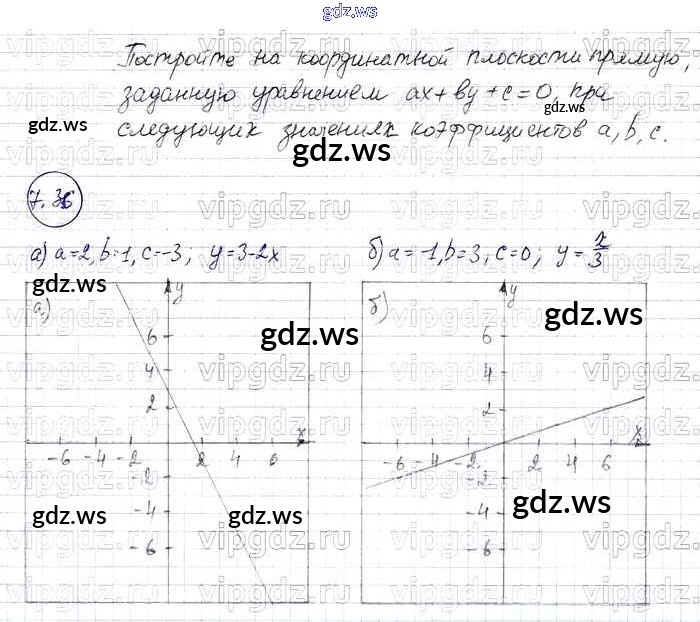 gdz.ws
Постройте на координатной плоскости прямую,
заданную уравнением ax+by+c=0, при
следующих значениях коэффициентов a, b, c.
gdz.ws
gdz.ws
7.36
а) a=2, b=1, c=-3; y=3-2x
б) a=-1, b=3, c=0; y=x/3
gdz.ws
gdz.ws
gdz.ws
а)
y
x
6
4
2
-6 -4 -2 2 4 6
-2
-4
-6
б)
y
x
6
4
2
-6 -4 -2 2 4 6
-2
-4
-6
gdz.ws
gdz.ws
gdz.ws
vipgdz.ru